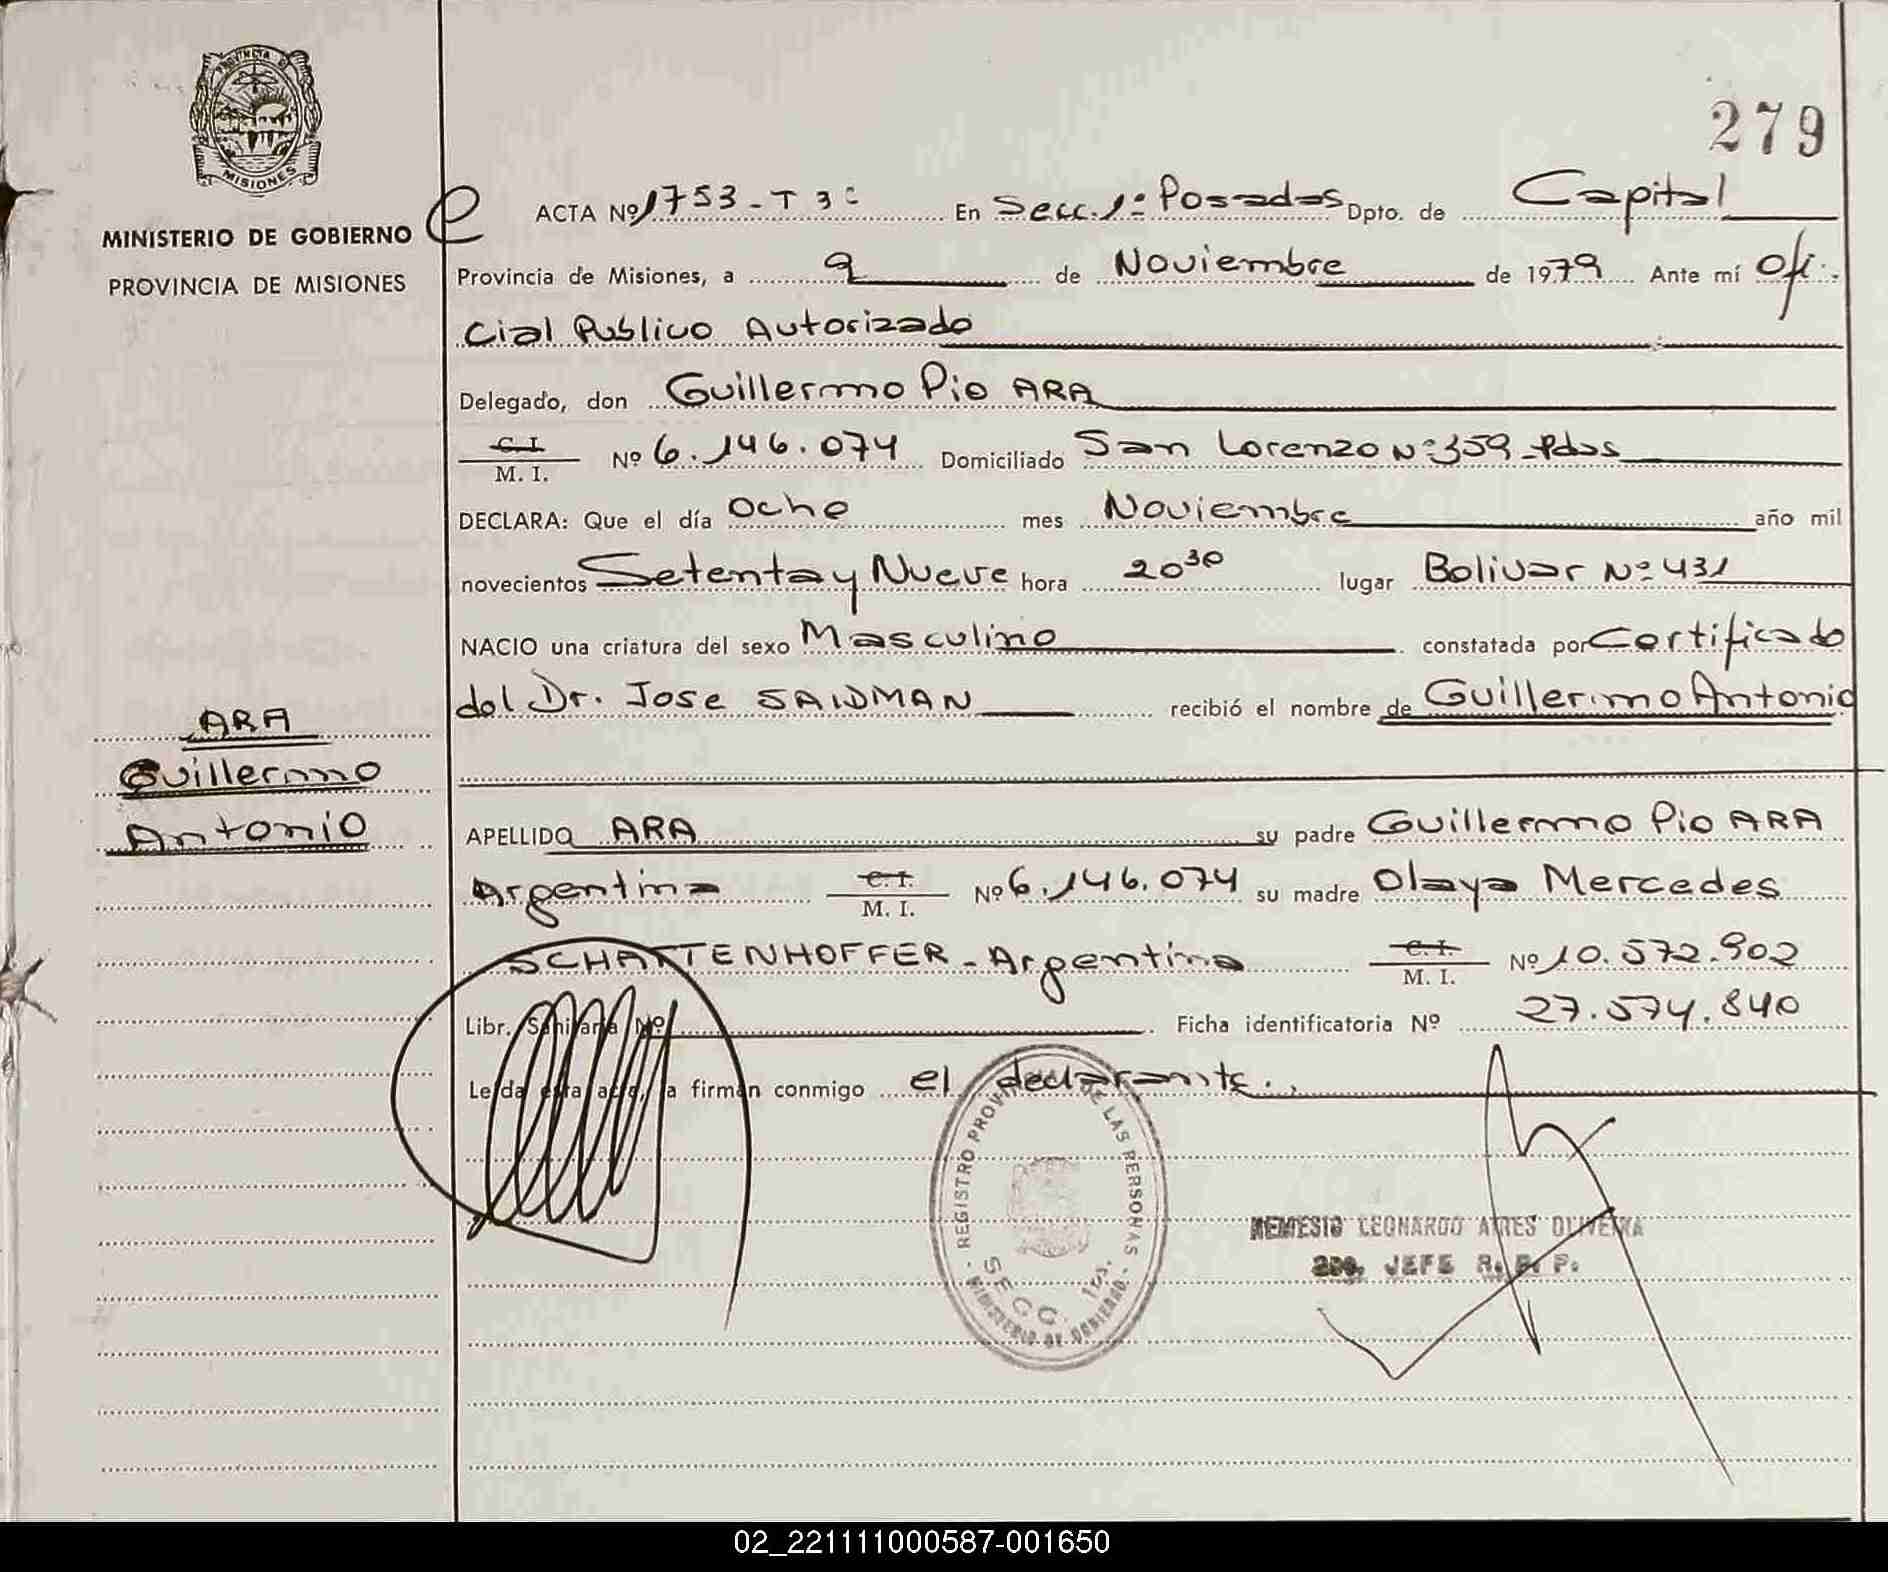 PROVINCIA DE
MISIONES
MINISTERIO DE GOBIERNO
PROVINCIA DE MISIONES
ARA
Guillermo
Antonio
279
ACTA Nº 1753 - T 3º En Secc. 1º Posadas Dpto. de Capital
Provincia de Misiones, a 9 de Noviembre de 1979 Ante mí Ofi-
cial Publico Autorizado
Delegado, don Guillermo Pio ARA
C. I.
M. I. Nº 6.146.074 Domiciliado San Lorenzo Nº 359 - Pdas
DECLARA: Que el día Ocho mes Noviembre año mil
novecientos Setenta y Nueve hora 20³⁰ lugar Bolivar Nº 431
NACIO una criatura del sexo Masculino constatada por Certificado
del Dr. Jose SAIDMAN recibió el nombre de Guillermo Antonio
APELLIDO ARA su padre Guillermo Pio ARA
Argentina C. I.
M. I. Nº 6.146.074 su madre Olaya Mercedes
SCHATTENHOFFER - Argentina C. I.
M. I. Nº 10.572.902
Libr. Sanitaria Nº Ficha identificatoria Nº 27.574.840
Leída esta acta, la firman conmigo el declarante.
REGISTRO PROVINCIAL DE LAS PERSONAS
SECC. 1ra.
- MINISTERIO DE GOBIERNO -
NEMESIO LEONARDO AIRES OLIVEIRA
2do. JEFE R. P. P.
02_221111000587-001650